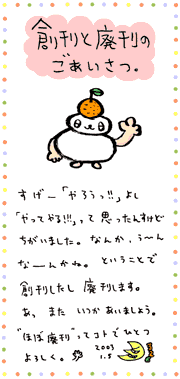 創刊と廃刊の
ごあいさつ。
すげー「やろうっ!!」よし
「やってやる!!」って思ったんすけど
ちがいました。なんか、う〜ん
な〜んかね。ということで
創刊したし廃刊します。
あっ またいつかあいましょう。
"ほぼ廃刊"ってコトでひとつ
よろしく。
2003
1.5